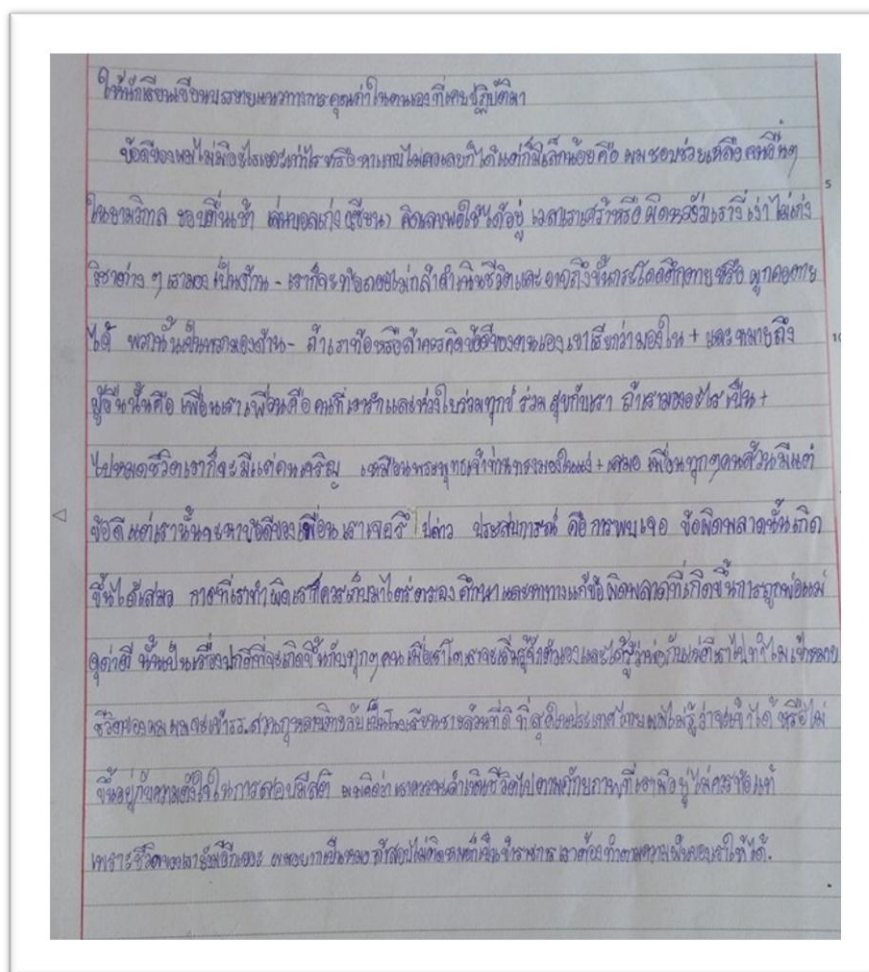 ให้นักเรียนเขียนบรรยายแนวทางการคุณค่าในตนเองที่เคยปฏิบัติมา
ข้อดีของผมไม่มีอะไรเยอะเท่าไรหรือหาแทบไม่เจอเลยก็ได้แต่ก็มีเล็กน้อยคือ ผมชอบช่วยเหลือ คนอื่นๆ
ในยามวิกาล ชอบตื่นเช้า เล่นบอลเก่ง (เซียน) คิดเลขพอใช้ได้อยู่ เวลาเราเศร้าหรือ ผิดหวังว่าเรางี่เง่า ไม่เก่ง
วิชาต่าง ๆ เรามองเป็นด้าน - เราก็จะท้อถอยไม่กล้าดำเนินชีวิตและ อาจถึงขั้นกระโดดตึกตาย หรือ ผูกคอตาย
ได้ พวกนั้นเป็นพวกมองด้าน - ถ้าเราท้อหรือล้าควรคิดข้อดีของตนเอง เขาเรียกว่ามองใน + และ หมายถึง
ผู้อื่นนั้นคือ เพื่อนเรา เพื่อนคือ คนที่เรารักและห่วงใยร่วมทุกข์ ร่วมสุขกับเรา ถ้าเรามองอะไร เป็น +
ไปหมดชีวิตเราก็จะมีแต่คนเจริญ เหมือนพระพุทธเจ้าท่านทรงมองในแง่ + เสมอ เพื่อนทุกๆคนล้วนมีแต่
ข้อดี แต่เรานั้นจะหาข้อดีของเพื่อน เราเจอรึ ปล่าว ประสบการณ์ คือการพบเจอ ข้อผิดพลาดนั้นเกิด
ขึ้นได้เสมอ การที่เราทำผิดเราก็ควรเก็บมาไตร่ตรอง ศึกษา และหาทางแก้ข้อผิดพลาดที่เกิดขึ้นการถูกพ่อแม่
ดุด่าตี นั้นเป็นเรื่องปกติที่จะเกิดขึ้นกับทุกๆคน เมื่อเราโตเราจะเริ่มรู้จักตัวเองและได้รู้ว่าพ่อกับแม่ตีเราไปทำไม เป้าหมาย
ชีวิตของผม ผมจะเข้ารร.สวนกุหลาบวิทยาลัยเป็นโรงเรียนชายล้วนที่ดี ที่สุดในประเทศไทย ผมไม่รู้ว่าจะเข้าได้ หรือไม่
ขึ้นอยู่กับความตั้งใจในการสอบมีสติ ผมคิดว่าเราควรดำเนินชีวิตไปตามศักยภาพที่เรามีอยู่ ไม่ควรท้อแท้
เพราะชีวิตของเรายังมีอีกเยอะ ผมอยากเป็นหมอ ถ้าสอบไม่ติดหมอก็เป็นข้าราชการ เราต้องทำตามความฝันของเราให้ได้.